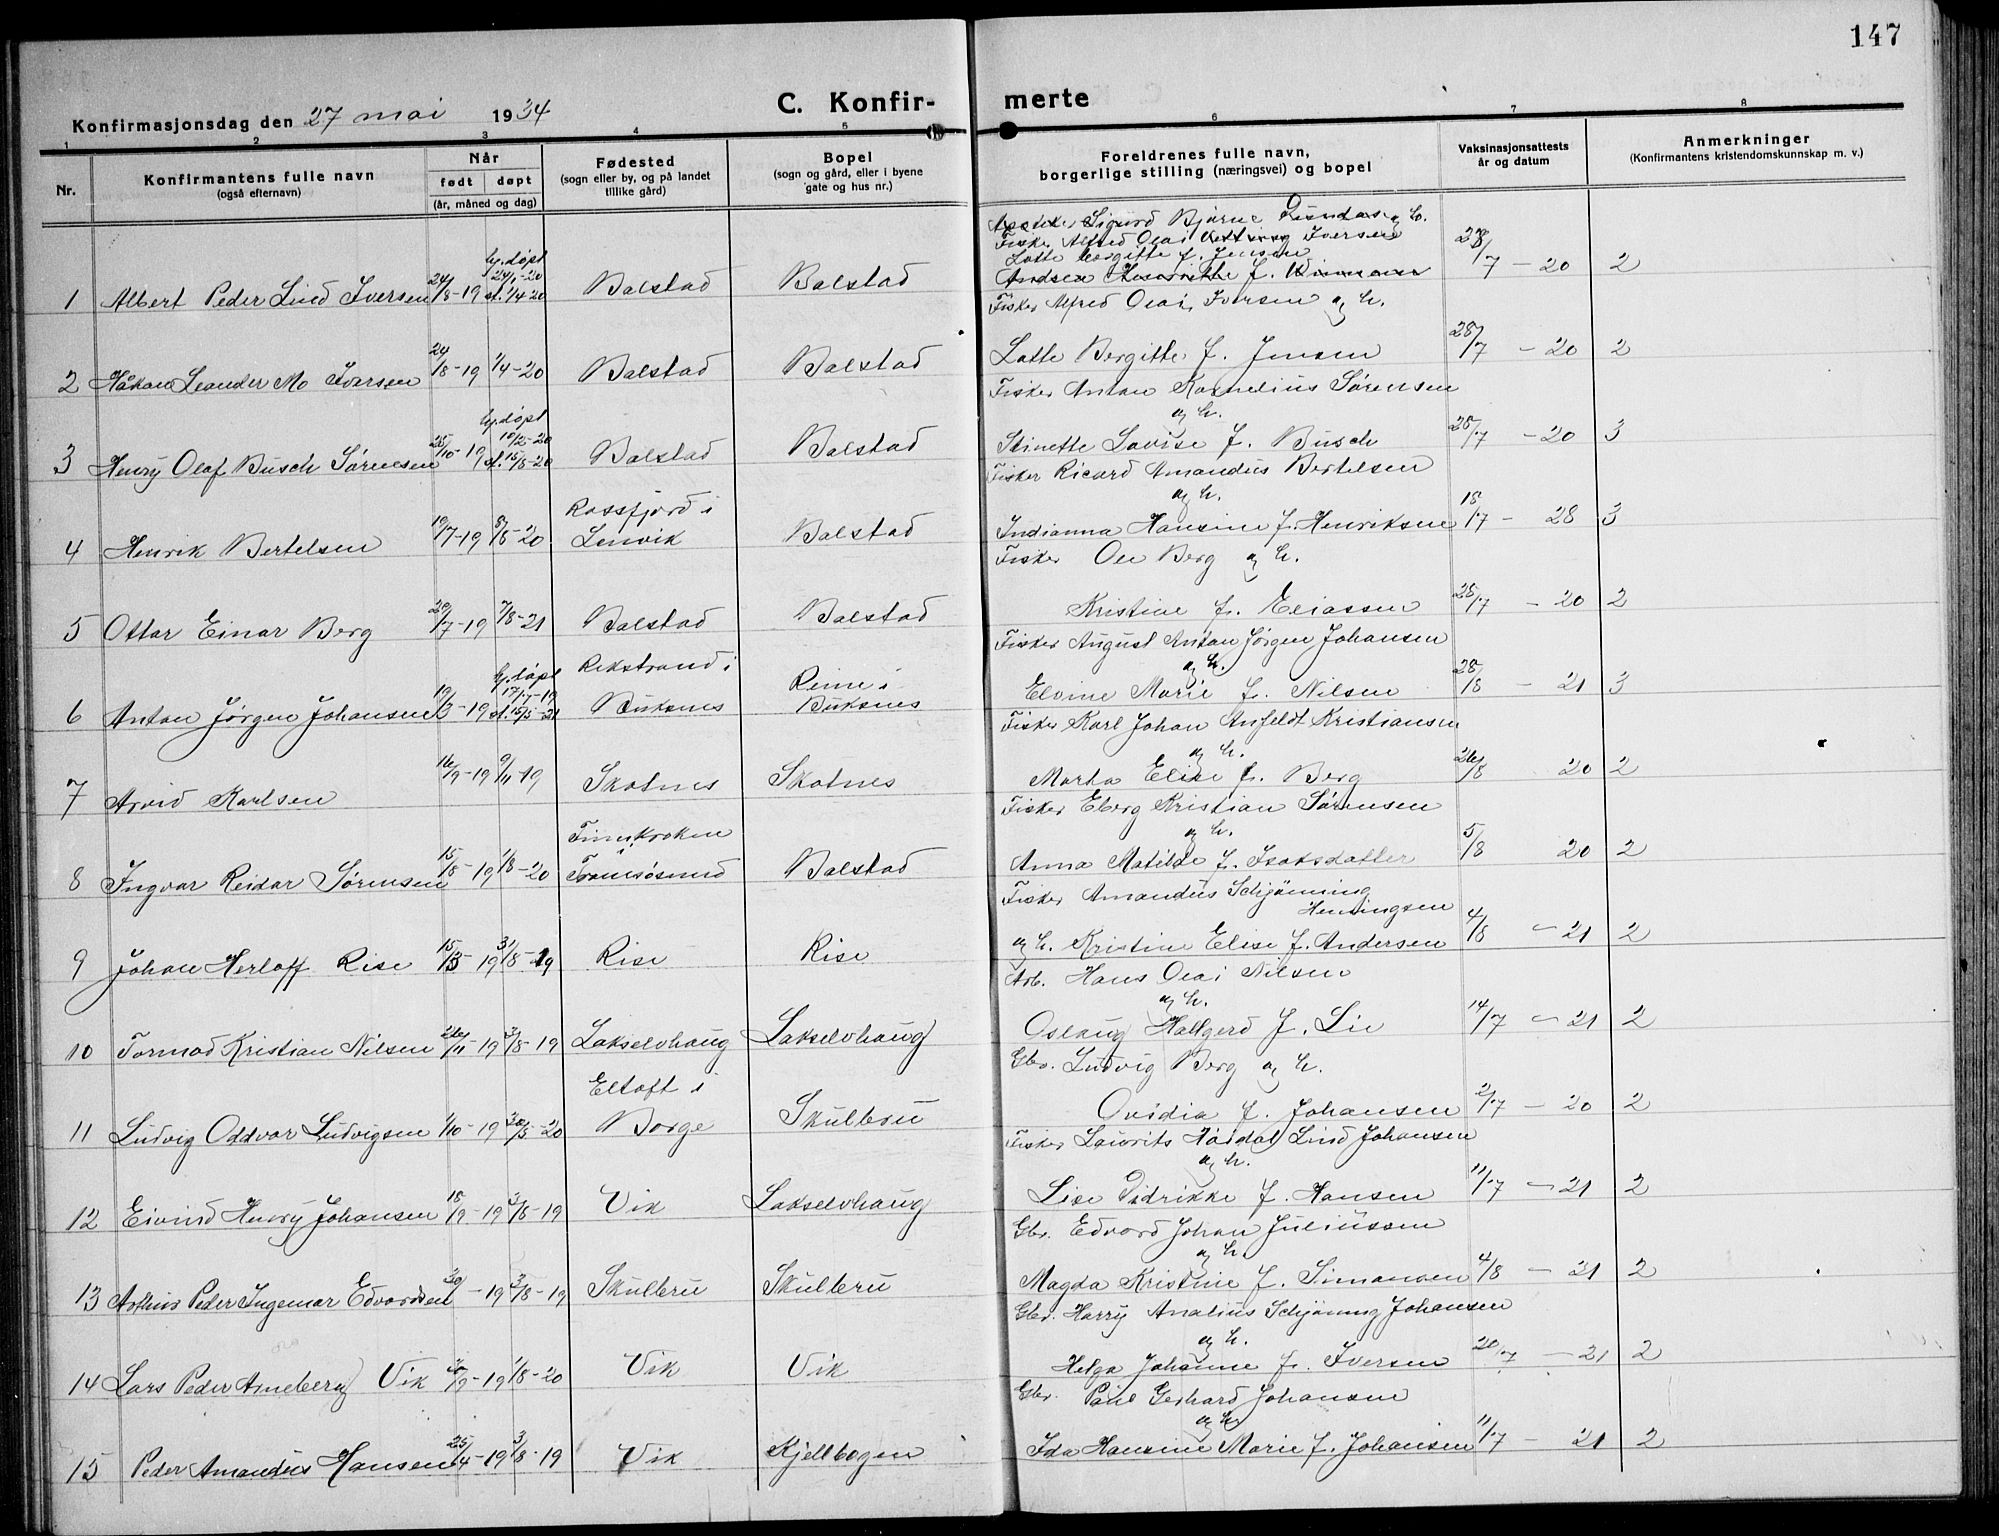 147
C. Konfir- merte
Konfirmasjonsdag den 27 mai 1934
1 2 3 4 5 6 7 8
Nr.
Konfirmantens fulle navn
(også efternavn)
Når
født døpt
(år, måned og dag)
Fødested
(sogn eller by, og på landet
tillike gård)
Bopel
(sogn og gård, eller i byene
gate og hus nr.)
Foreldrenes fulle navn,
borgerlige stilling (næringsvei) og bopel
Vaksinasjonsattests
år og datum
Anmerkninger
(Konfirmantens kristendomskunnskap m. v.)
Sigurd Bjarne
Fisker Alfred Olai Iversen
Lotte Bergitte f. Jensen
1 Albert Peder Lind Iversen 24/8-19 hj.døpt 24/1-20 st. 1/4-20 Balstad Balstad 28/7 - 20 2
Fisker Alfred Olai Iversen og h.
2 Håkon Leander Mo Iversen 24/8-19 1/4-20 Balstad Balstad Lotte Bergitte f. Jensen 28/7 - 20 2
Fisker Anton Kornelius Sørensen
og h.
3 Henry Olaf Busch Sørensen 28/10-19 hj.døpt 10/2-20 st. 15/8-20 Balstad Balstad Stinette Lovise f. Busch 28/7 - 20 3
Fisker Ricard Amandus Bertelsen
og h.
4 Henrik Bertelsen 19/7-19 8/8-20 Rossfjord i Lenvik Balstad Indianna Hansine f. Henriksen 18/7 - 28 3
Fisker Ole Berg og h.
5 Ottar Einar Berg 29/7-19 7/8-21 Balstad Balstad Kristine f. Eliassen 28/7 - 20 2
Fisker August Anton Jørgen Johansen
og h.
6 Anton Jørgen Johansen hj.døpt 17/7-19 st. 15/5-21 Rekstrand i Buksnes Reine i Buksnes Elvine Marie f. Nilsen 28/8 - 21 3
Fisker Karl Johan Anfeldt Kristiansen
og h.
7 Arvid Karlsen 16/9-19 9/11-19 Skotnes Skotnes Marha Elise f. Berg 26/8 20 2
Fisker Eberg Kristian Sørensen
og h.
8 Ingvar Reidar Sørensen 15/8-19 1/8-20 Finnkroken i Tromsøsund Balstad Anna Matilde f. Isaksdatter 5/8 20 2
Fisker Amandus Schjønning
Henningsen
9 Johan Herloff Rise 15/5-19 31/8-19 Rise Rise og h. Kristine Elise f. Andersen 4/8 - 21 2
Arb. Hans Olai Nilsen
og h.
10 Tormod Kristian Nilsen 26/11-19 3/8-19 Lakselvhaug Lakselvhaug Oslaug Hallgerd f. Lie 14/7 - 21 2
Gbr. Ludvig Berg og h.
11 Ludvig Oddvar Ludvigsen 1/10-19 30/5-20 Eltoft i Borge Skulbru Ovidia f. Johansen 2/7 - 20 2
Fisker Laurits Hårdal Lind Johansen
og h.
12 Eivind Henry Johansen 18/9-19 3/8-19 Vik Lakselvhaug Lise Didrikke f. Hansen 11/7 - 21 2
Gbr. Edvard Johan Juliussen
og h.
13 Peder Ingemar Edvardsen - 19 3/8-19 Skulbru Skulbru Magda Kristine f. Simonsen 4/8 - 21 2
Gbr. Harry Analius Schjønning Johansen
og h.
14 Lars Peder Arneberg Vik 30/9-19 1/8-20 Vik Vik Helga Johanne f. Iversen 20/7 - 21 2
Gbr. Paul Gerhard Johansen
og h.
15 Peder Amandus Hansen 25/4-19 3/8-19 Vik Kjellbogen Ida Hansine Marie f. Johansen 11/7 - 21 2